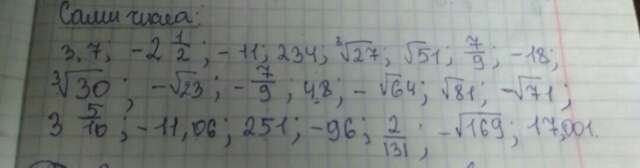 Сами числа:
3,7; -2 1/2; -11; 234; ³√27; √51; 7/9; -18;
³√30; -√23; -7/9; 4,8; -√64; √81; -√71;
3 5/10; -11,06; 251; -96; 2/131; -√169; 17,001.